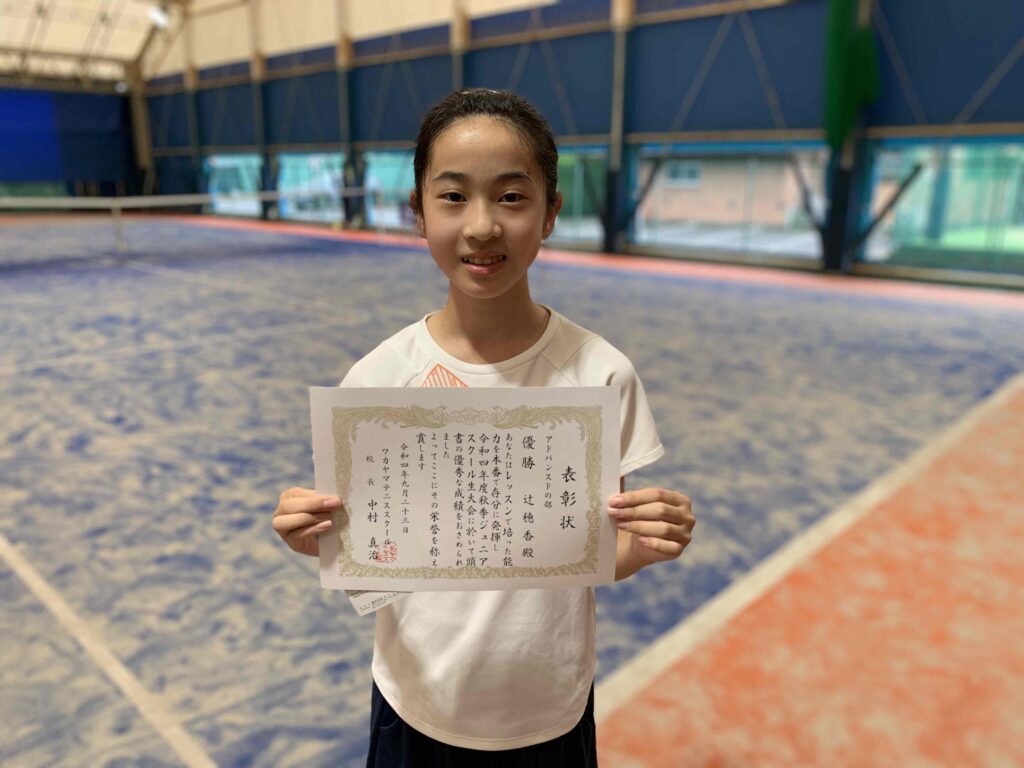 表彰状
アドバンスドの部
優勝　辻穂香殿
あなたはレッスンで培った能
力を本番で存分に発揮し
令和四年度秋季・ジュニア
スクール生大会に於いて頭
書の優秀な成績をおさめられ
ました
よってここにその栄誉を称え
賞します
令和四年九月二十三日
ワカヤマテニススクール
校長　中村真治